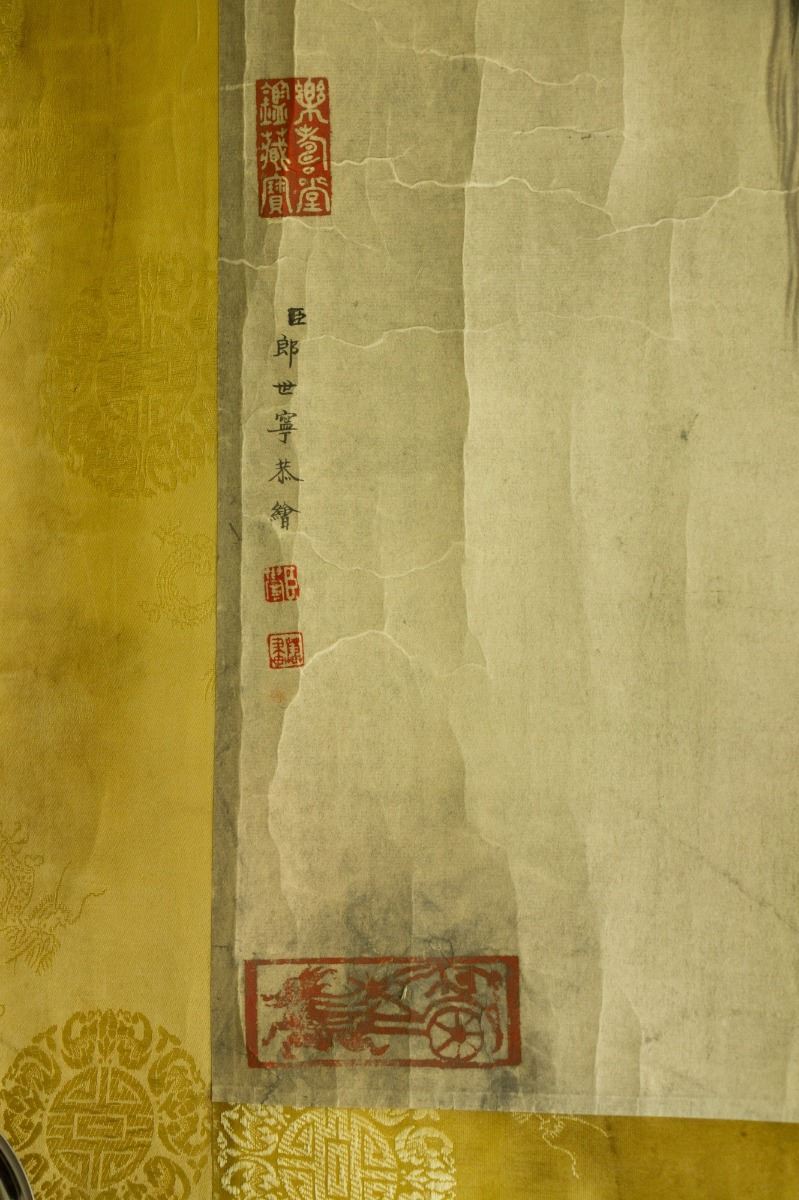 樂壽堂
鑑藏寶
臣郎世寧恭繪